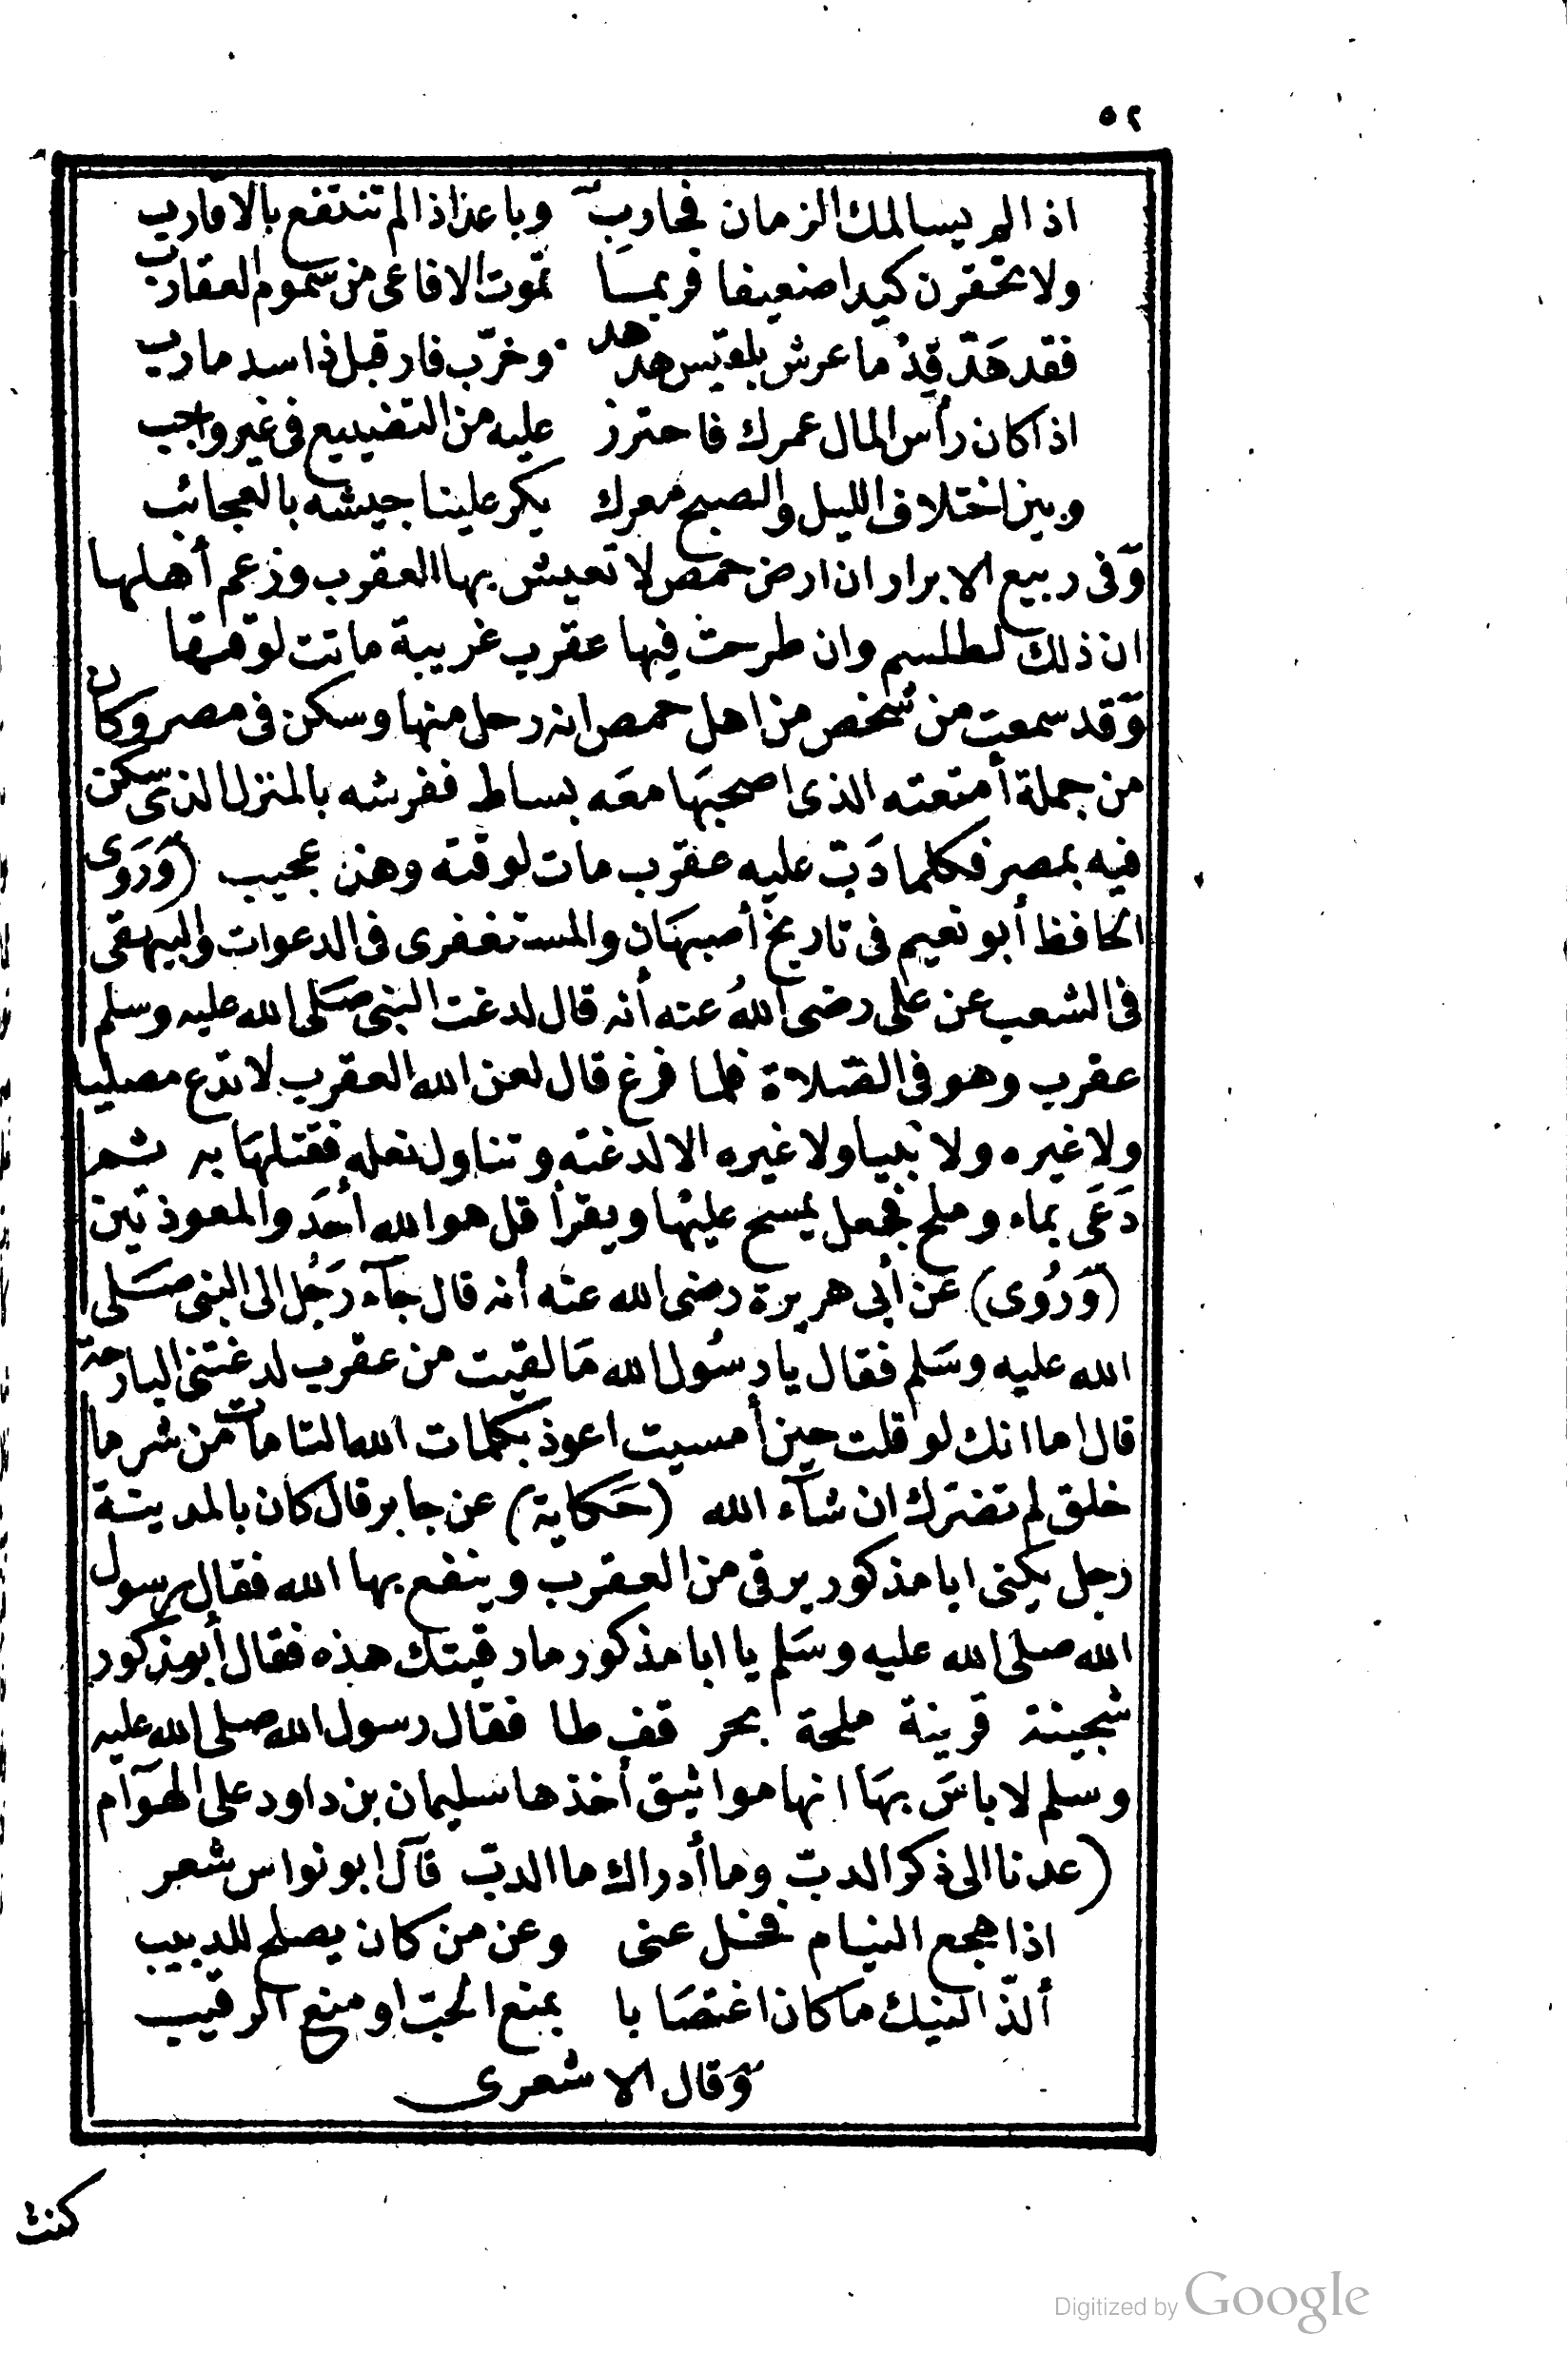 ٥٢
اذا لم يسالمك الزمان فحارب وباعد اذا لم تنتفع بالاقارب
ولا تحقرن كيدا ضعيفا فربما تموت الافاعى من سموم العقارب
فقد هَدّ قِدْما عرش بلقيس هدهد وخرّب فار قبل ذا سد مارب
اذا كان رأس المال عمرك فاحترز عليه من التضييع فى غير واجب
وبين اختلاف الليل والصبح معرك يكر علينا جيشه بالعجائب
وَفى ربيع الابرار ان ارض حمص لا تعيش بها العقرب وزعم أهلها
ان ذلك لطلسم وان طرحت فيها عقرب غريبة ماتت لوقتها
وَقد سمعت من شخص من اهل حمص انه رحل منها وسكن فى مصر وكان
من جملة أمتعته الذى اصحبهَا معَه بساط ففرشه بالمنزل الذى سكن
فيه بمصر فكلما دَبّ عليه عقرب مات لوقته وهذ عجيب (وَرَوى
الحافظ أبو نعيم فى تاريخ أصبهَان والمستغفرى فى الدعوات والبيهقى
فى الشعب عن على رضى اللهُ عنه أنه قال لدغت النبى صَلى الله عليه وسلم
عقرب وهو فى الصّلاة فلما فرغ قال لعن الله العقرب لا تدع مصليا
ولا غيره ولا نبيا ولا غيره الا لدغته وتناول نعله فقتلهَا به ثم
دَعَى بماء وملح فجعل يمسح عليْها ويقرأ قل هو الله أحَد والمعوذتين
(وَرُوى) عَن أبى هريرة رضى الله عنْه أنه قال جآء رَجُل الى النبى صَلى
الله عليه وسَلم فقال يا رسُول الله مَا لقيت من عقرب لدغتنى البارحة
قال اما انك لو قلت حين أمسيت اعوذ بكلمات الله التامات من شر ما
خلق لم تضرّك ان شآء الله (حَكاية) عن جابر قال كان بالمدينة
رجل يكنى ابا مذكور يرقى من العقرب وينفع بها الله فقال رسول
الله صلى الله عليه وسَلم يا ابا مذكور ما رقيتك هذه فقال أبو مذكور
شجينة قرينة ملحة بحر قفطا فقال رسول الله صلى الله عليه
وسلم لا باسَ بهَا انها مواثيق أخذها سليمان بن داود على الهوَآم
(عدنا الى ذكر الدبّ وما أدراك ما الدبّ قآل ابو نواس شعر
اذا هجع النيام فخل عنى وعن من كان يصلح للدبيب
ألذّ النيك ما كان اغتصَابا بمنع الحبّ او منع الرقيب
وَقال الاشعرى
كنت
Digitized by Google